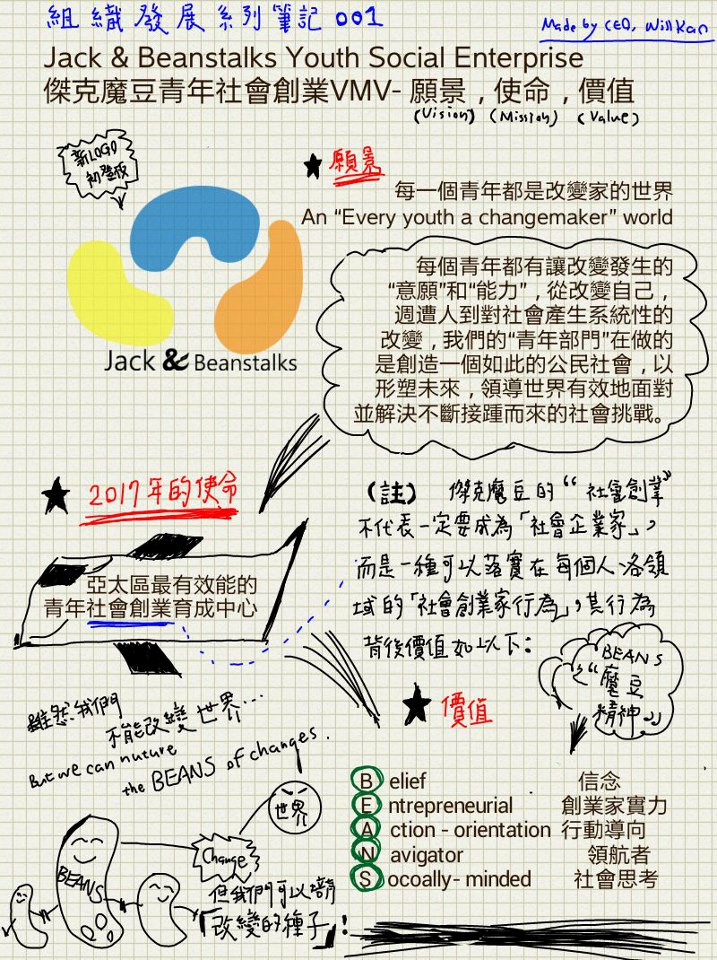 組織發展系列筆記001
Made by CEO, Will Kan
Jack & Beanstalks Youth Social Enterprise
傑克魔豆青年社會創業VMV- 願景，使命，價值
(Vision) (Mission) (Value)
新LOGO
初登版
★願景
每一個青年都是改變家的世界
An “Every youth a changemaker” world
Jack & Beanstalks
每個青年都有讓改變發生的
“意願”和“能力”，從改變自己，
週遭人到對社會產生系統性的
改變，我們的“青年部門”在做的
是創造一個如此的公民社會，以
形塑未來，領導世界有效地面對
並解決不斷接踵而來的社會挑戰。
★2017年的使命
亞太區最有效能的
青年社會創業育成中心
(註) 傑克魔豆的“社會創業”
不代表一定要成為「社會企業家」，
而是一種可以落實在每個人、各領
域的「社會創業家行為」，其行為
背後價值如以下：
BEANS
之“魔豆
精神”
雖然我們
不能改變世界...
But we can nuture
the BEANS of changes.
★價值
Belief 信念
Entrepreneurial 創業家實力
Action - orientation 行動導向
Navigator 領航者
Socoally- minded 社會思考
世界
Change
BEANS
但我們可以培育
「改變的種子」!